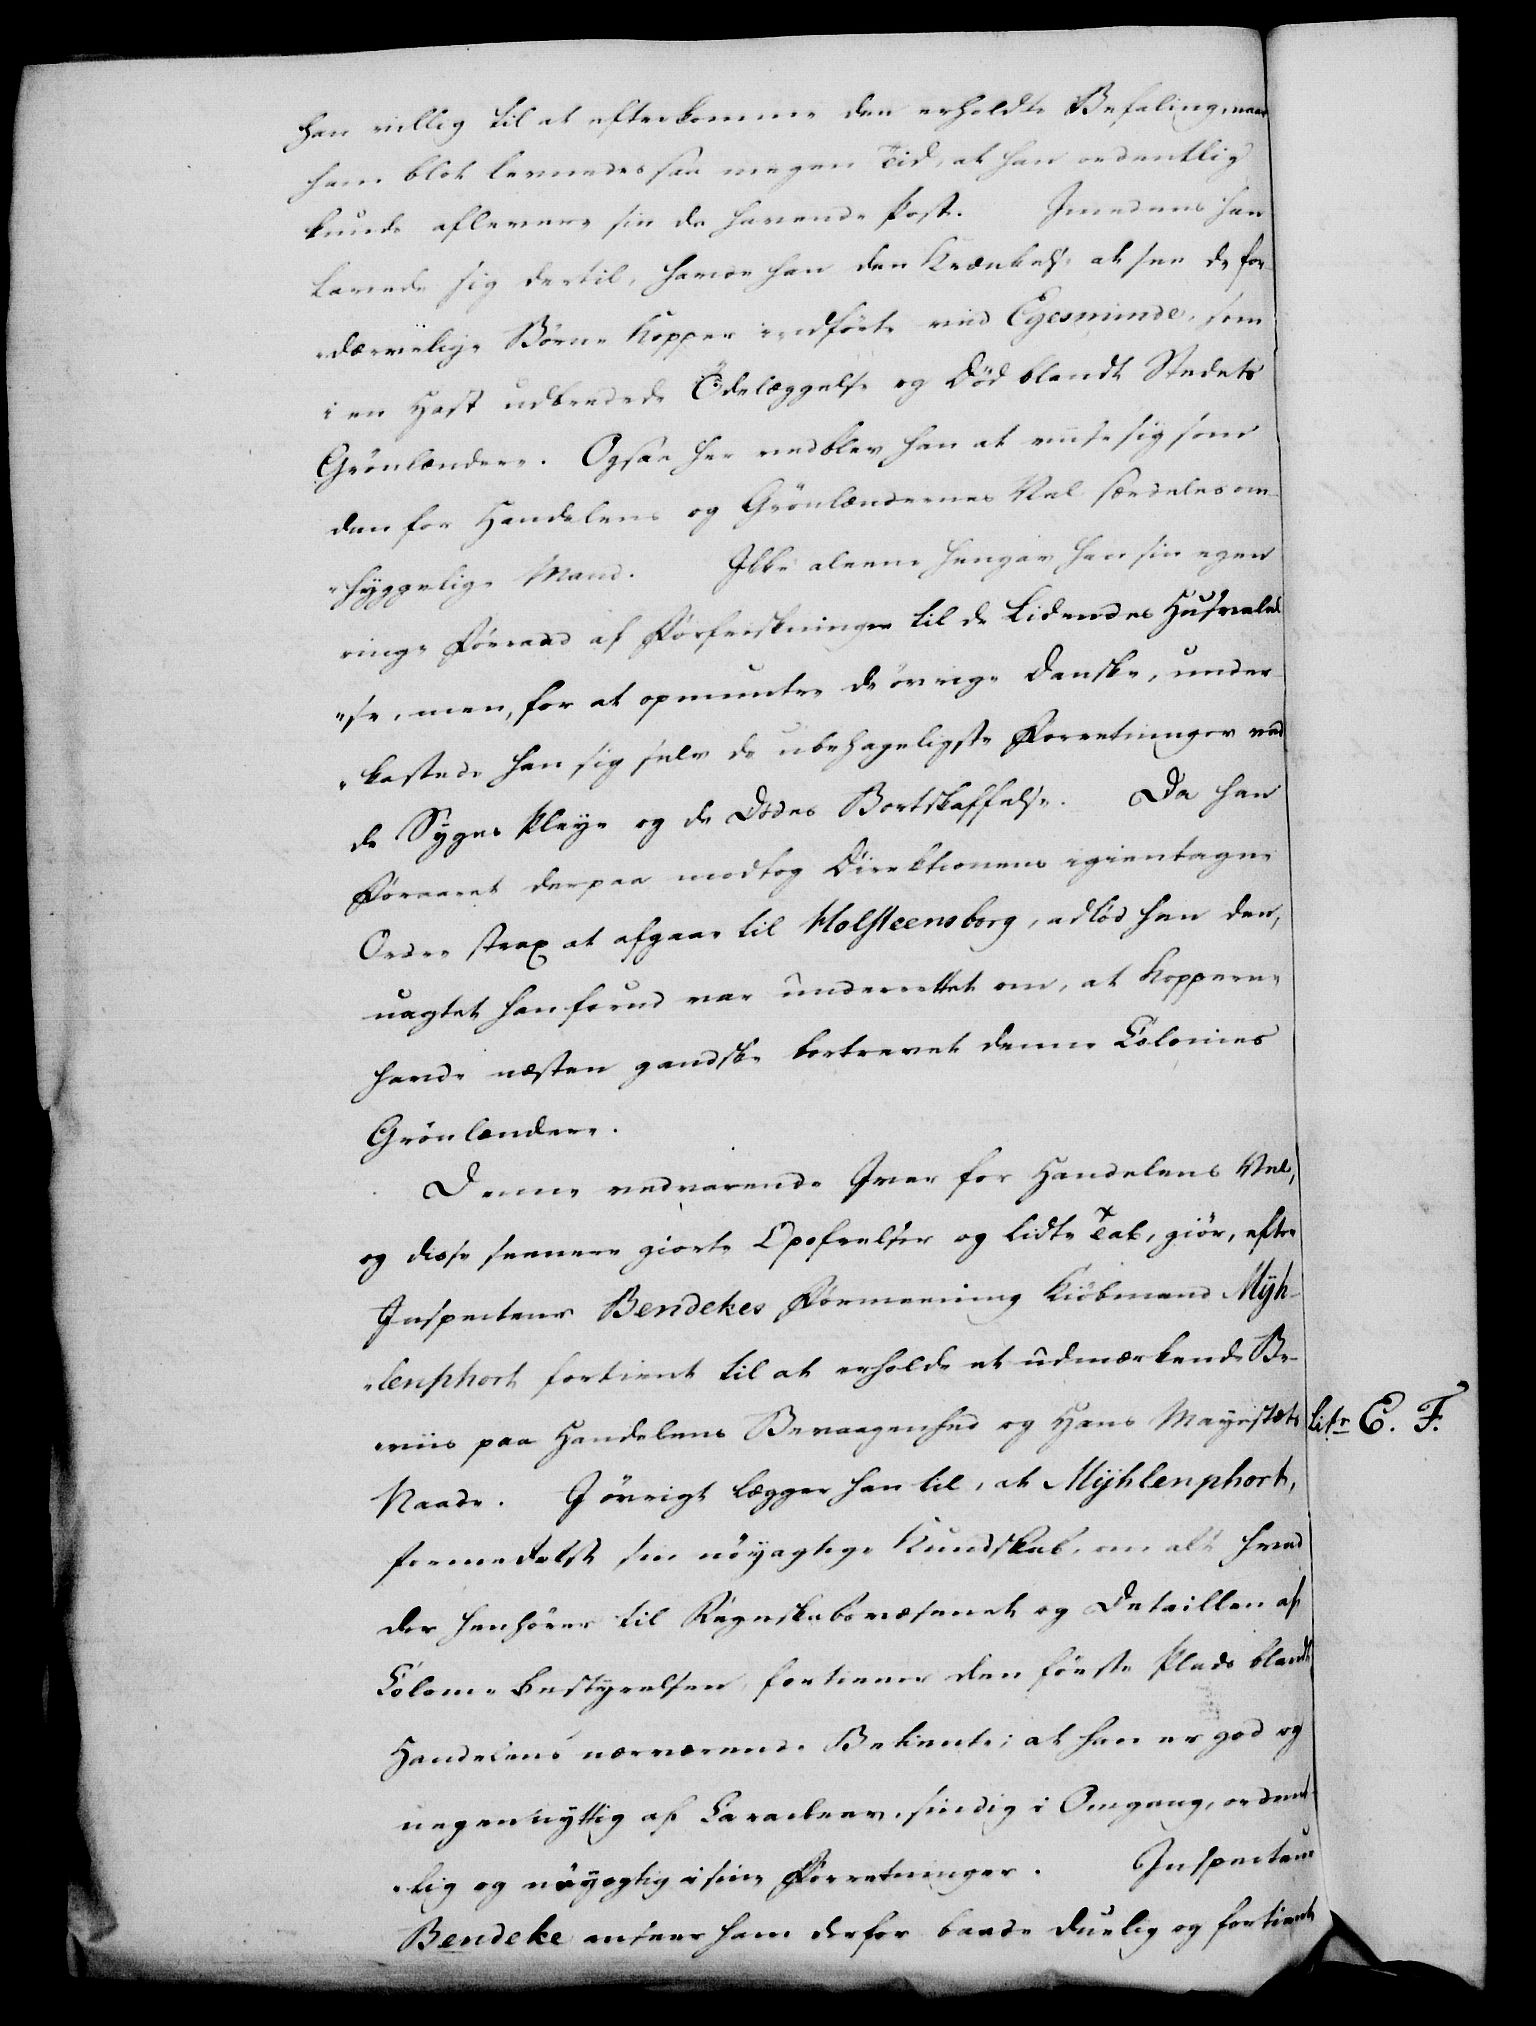 han villig til at efterkomme den erholdte Befaling, naar
ham blot levnedes saa megen Tid, at han ordentlig
kunde aflevere sin da havende Post. Imedens han
lavede sig dertil, havde han den Krænkelse at see de for-
"dærvelige Børne Kopper indførte ved Egesminde, som
i en Hast udbredede Ödelæggelse og Död blandt Stedets
Grönlændere. Ogsaa her vedblev han at viise sig som
den for Handelens og Grönlændernes Vel særdeles om-
"hyggelige Mand. Ikke aleene hengav han sin egen
ringe Forraad af Forfriskninger til de Lidendes Husvalel
"se, men, for at opmuntre de övrige Danske, under
"kastede han sig selv de ubehageligste Forretninger ved
de Syges Pleye og de Dödes Bortskaffelse. Da han
Foraaret derpaa modtog Direktionens igientagne
Ordre strax at afgaae til Holsteensborg, adlöd han den,
uagtet han forud var underrettet om, at Kopperne
havde næsten gandske bortrevet denne Colonies
Grönlændere.
Denne vedvarende Iver for Handelens Vel,
og disse seenere giorte Opofrelser og lidte Tab, giör, efter
Inspecteur Bendekes Formeening Kiöbmand Mÿh-
"lenphort fortient til at erholde et udmærkende Be-
"viis paa Handelens Bevaagenhed og Hans Mayestæts
Naade. I övrigt lægger han til, at Mÿhlenphort,
formedelst sin nöyagtige Kundskab om alt hvad
der henhörer til Regnskabsvæsenet og Detaillen af
Colonie Bestyrelsen, fortiener den förste Plads blandt
Handelens nærværende Betiente; at han er god og
uegennyttig af Caracteer, sindig i Omgang, ordent-
"lig og nöyagtig i sine Forretninger. Inspecteur
Bendeke ansеer ham derfor baade duelig og fortient
Litr E. F.